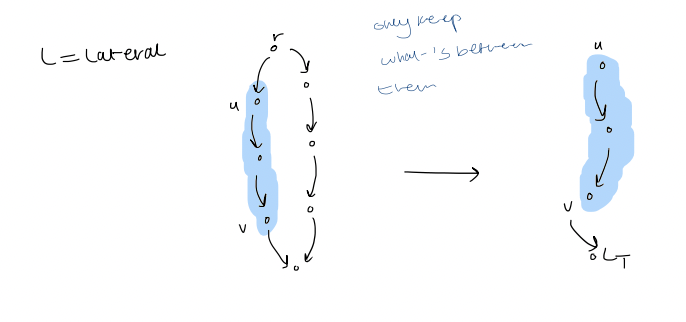 L = Lateral
r
u
v
only keep
what's between
them
u
v
LT